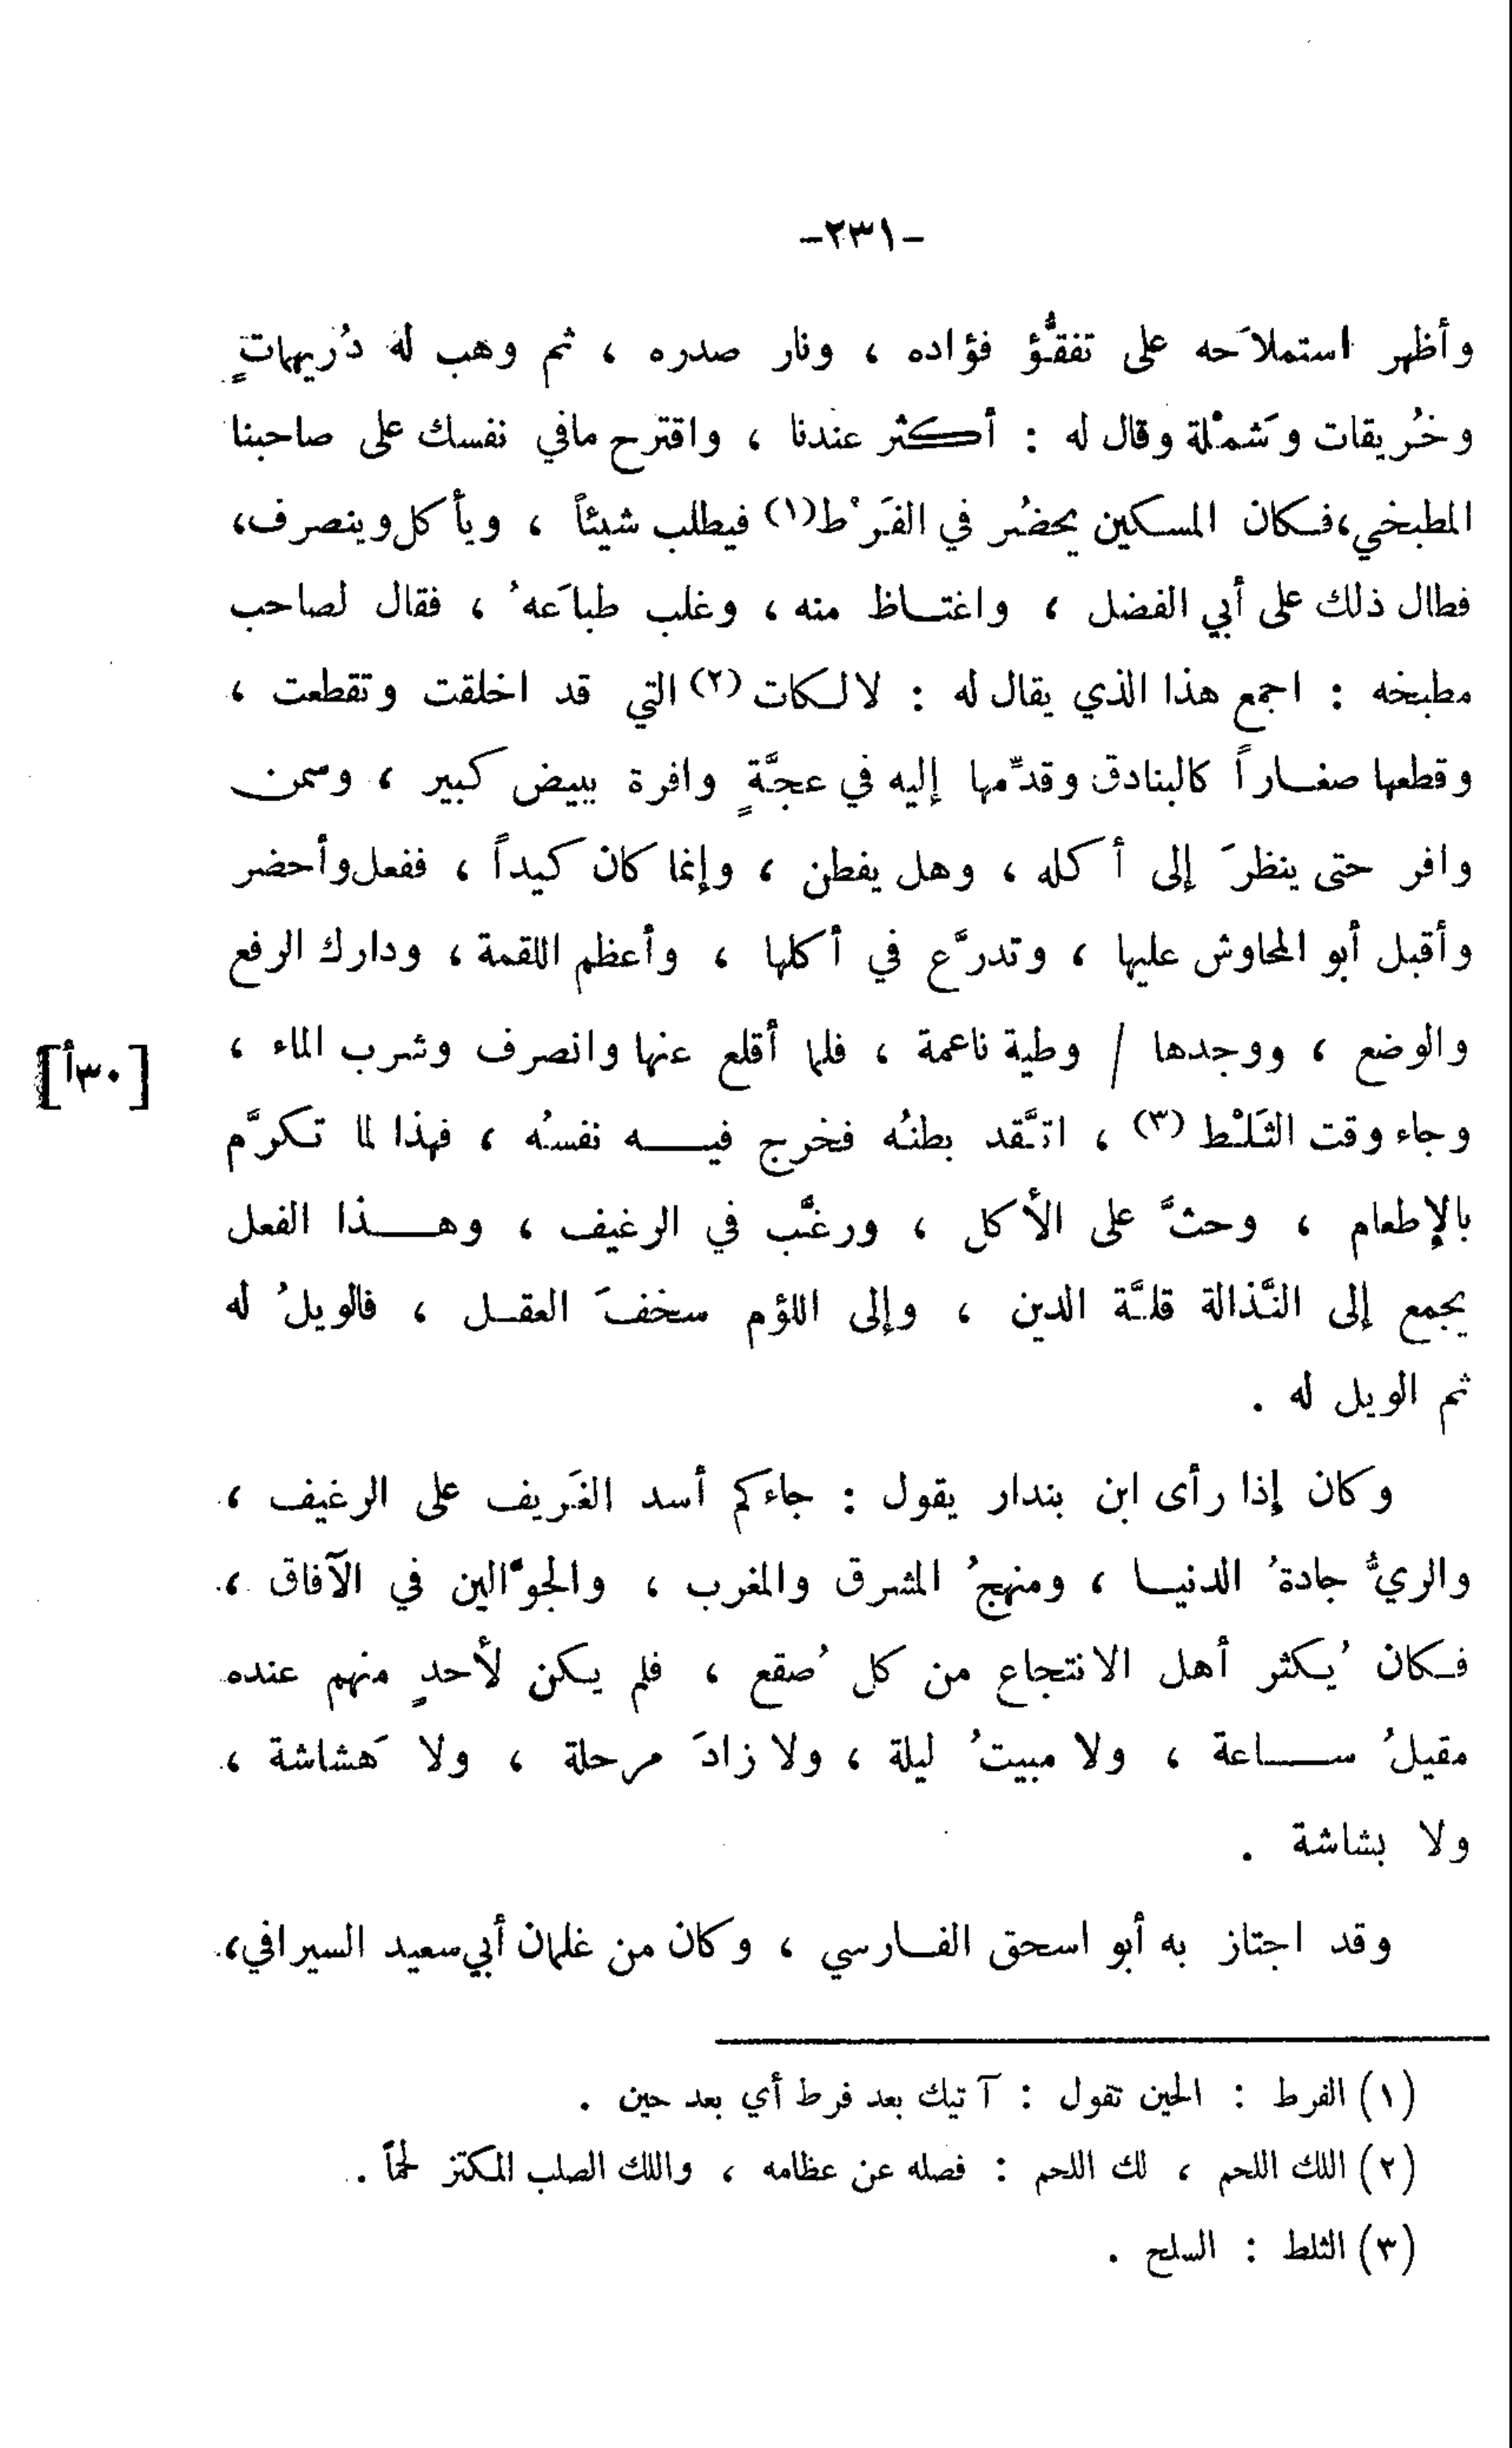 -٢٣١-
وأظهر استملاَحه على تفقُّؤ فؤاده ، ونار صدره ، ثم وهب له دُريهماتٍ
وخُريقات وَشمْلة وقال له : أكثر عندنا ، واقترح مافي نفسك على صاحبنا
المطبخي ، فكان المسكين يحضُر في الفَرْط(١) فيطلب شيئاً ، ويأكل وينصرف ،
فطال ذلك على أبي الفضل ، واغتاظ منه ، وغلب طباَعهُ ، فقال لصاحب
مطبخه : اجمع هذا الذي يقال له : لالكات (٢) التي قد اخلقت وتقطعت ،
وقطعها صغاراً كالبنادق وقدِّمها إليه في عجَّةٍ وافرة ببيض كبير ، وسمن
وافر حتى ينظرَ إلى أكله ، وهل يفطن ، وإنما كان كيداً ، ففعل وأحضر
وأقبل أبو المحاوش عليها ، وتدرَّع في أكلها ، وأعظم اللقمة ، ودارك الرفع
والوضع ، ووجدها / وطية ناعمة ، فلما أقلع عنها وانصرف وشرب الماء ،
[٣٠أ]
وجاء وقت الثَلْط (٣) ، اتَّقد بطنُه فخرج فيه نفسُه ، فهذا لما تكرَّم
بالإطعام ، وحثَّ على الأكل ، ورغَّب في الرغيف ، وهذا الفعل
يجمع إلى النَّذالة قلَّة الدين ، وإلى اللؤم سخفَ العقل ، فالويلُ له
ثم الويل له .
وكان إذا رأى ابن بندار يقول : جاءكم أسد الغَريف على الرغيف ،
والريُّ جادةُ الدنيا ، ومنهجُ المشرق والمغرب ، والجوَّالين في الآفاق ،
فكان ُيكثر أهل الانتجاع من كل ُصقع ، فلم يكن لأحدٍ منهم عنده
مقيلُ ساعة ، ولا مبيتُ ليلة ، ولا زادَ مرحلة ، ولا َهشاشة ،
ولا بشاشة .
وقد اجتاز به أبو اسحق الفارسي ، وكان من غلمان أبي سعيد السيرافي ،
(١) الفرط : الحين تقول : آتيك بعد فرط أي بعد حين .
(٢) اللك اللحم ، لك اللحم : فصله عن عظامه ، واللك الصلب المكتز لحماً .
(٣) الثلط : السلح .